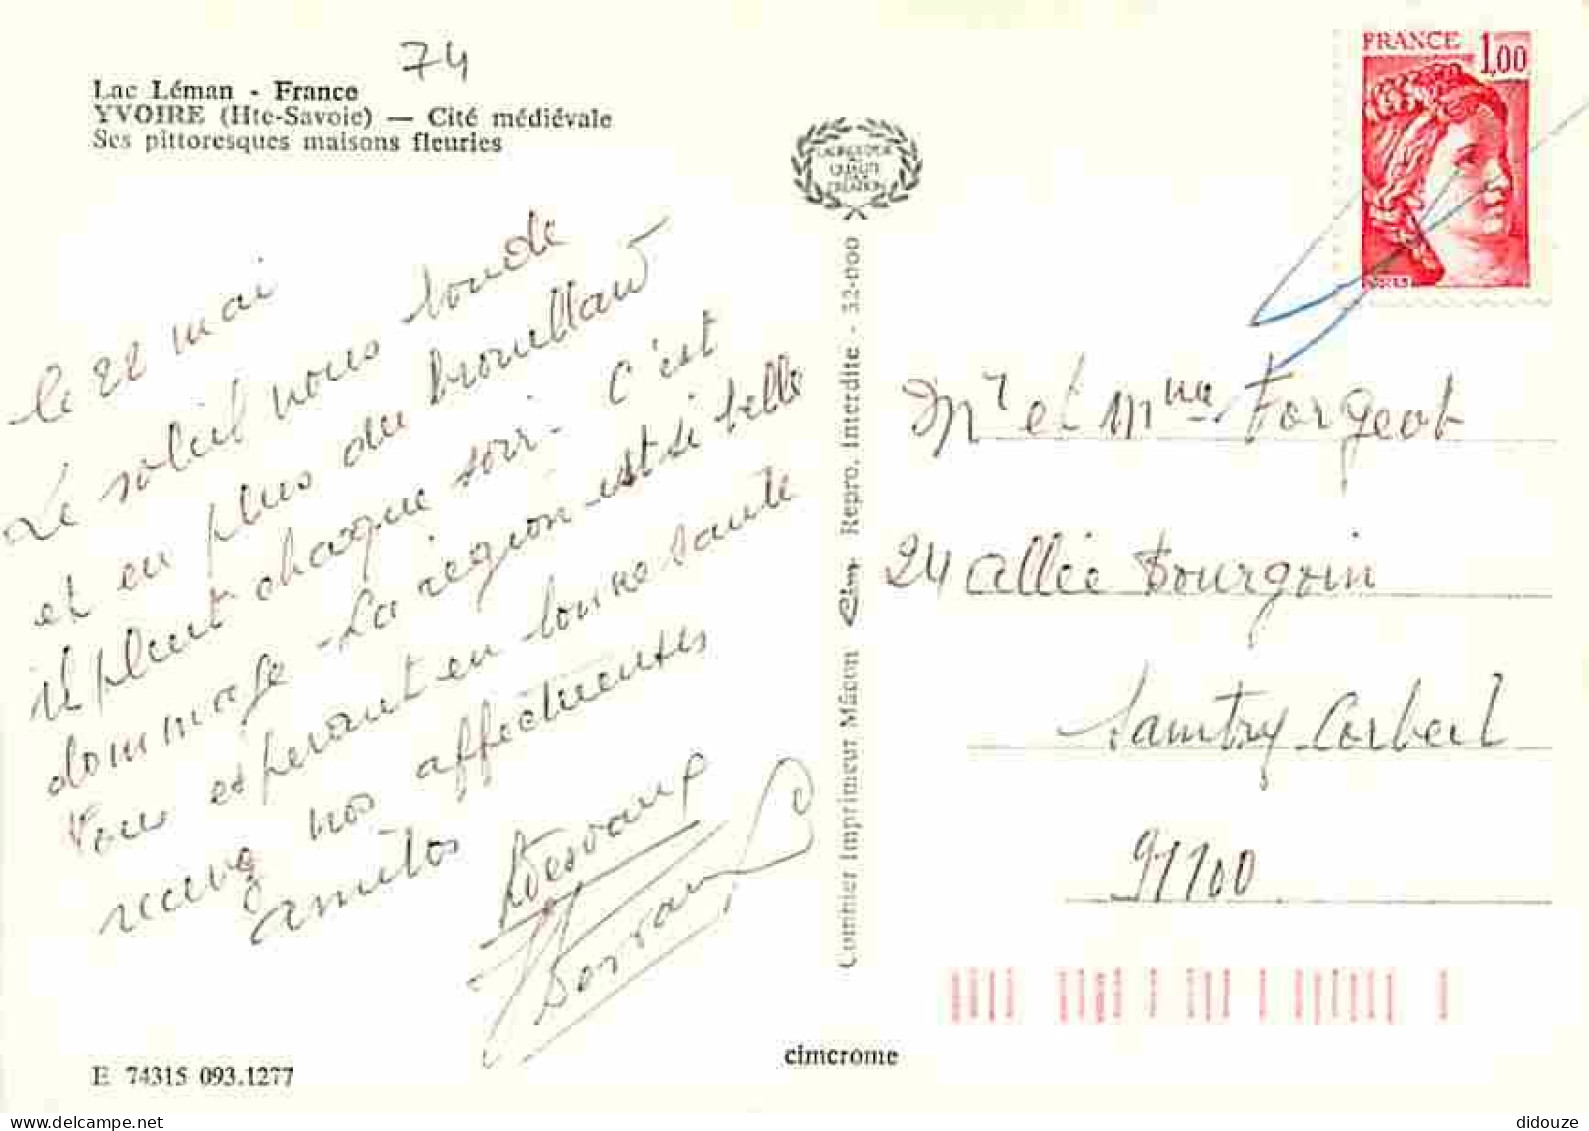 74
Lac Léman - France
YVOIRE (Hte-Savoie) — Cité médiévale
Ses pittoresques maisons fleuries
FRANCE 1,00
QUALITÉ
CRÉATION
le 22 mai
Le soleil nous boude
et en plus du brouillard
il pleut chaque soir - C'est
dommage - La région est si belle
Vous espérant en bonne santé
recevez nos affectueuses
amitiés
Desvaux
Mr et Mme Forgeot
24 allée Bourgoin
Saintry-Corbeil
91100
Combier Imprimeur Mâcon Cim Repro. Interdite - 32-000
cimcrome
E 74315 093.1277
didouze